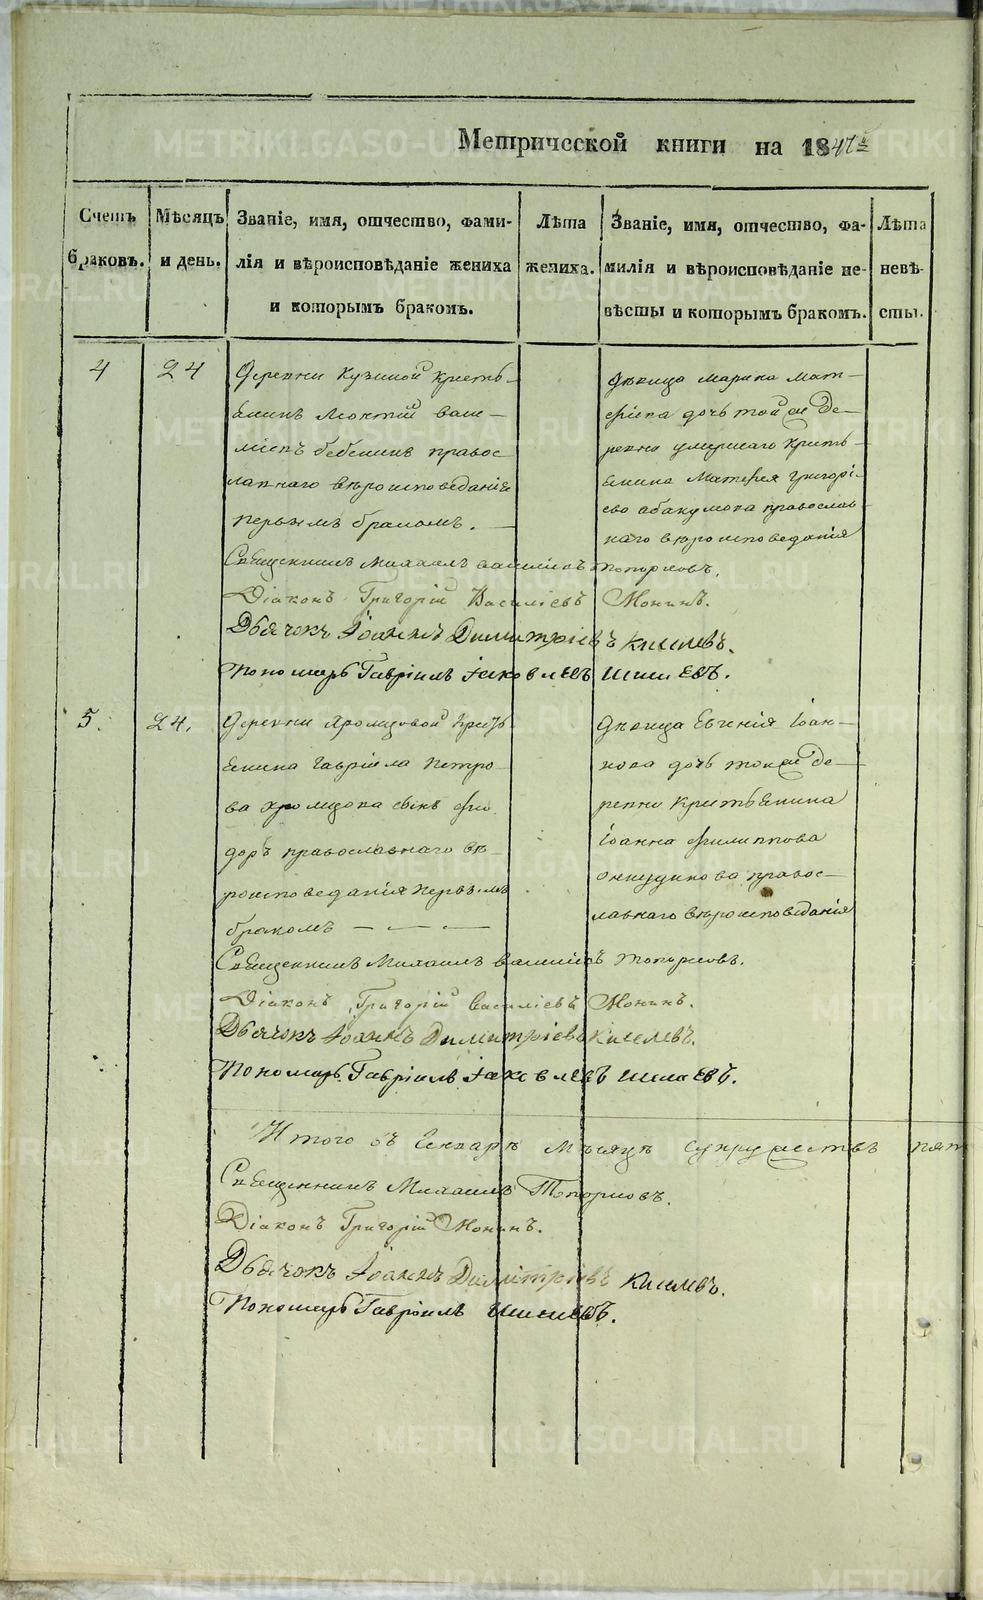 Метрической книги на 1847
Счетъ браковъ.
Мѣсяцъ и день.
Званіе, имя, отчество, фами-
лія и вѣроисповѣданіе жениха
и которымъ бракомъ.
Лѣта жениха.
Званіе, имя, отчество, фа-
милія и вѣроисповѣданіе не-
вѣсты и которымъ бракомъ.
Лѣта невѣ-
сты.
4
24
Деревни Кузиной кресть-
янинъ Леонтій Васи-
ліевъ православнаго вѣроисповеданія
первымъ бракомъ.
Дѣвица Марина Мат-
фіева дочь той же де-
ревни умершаго кресть-
янина Матфея Григорі-
ева Абакумова православ-
наго вѣроисповеданія
Священникъ Михаилъ Василіевъ Топорковъ.
Діаконъ Григорій Василіевъ Монинъ.
Дьячокъ Іоаннъ Димитріевъ Киселевъ.
Пономарь Гавріилъ Іаковлевъ Шишевъ.
5.
24.
Деревни кресть-
янина Гавріила Петро-
ва сынъ Фео-
доръ православнаго вѣ-
роисповеданія первымъ
бракомъ — — —
Дѣвица Евгенія Іоан-
нова дочь той же де-
ревни крестьянина
Іоанна Филиппова
Анкудинова правос-
лавнаго вѣроисповеданія
Священникъ Михаилъ Василіевъ Топорковъ.
Діаконъ Григорій Василіевъ Монинъ.
Дьячокъ Іоаннъ Димитріевъ Киселевъ.
Пономарь Гавріилъ Іаковлевъ
Итого въ Генварѣ мѣсяцѣ супружествъ пят
Священникъ Михаилъ Топорковъ.
Діаконъ Григорій Монинъ.
Дьячокъ Іоаннъ Димитріевъ Киселевъ.
Пономарь Гавріилъ
METRIKI.GASO-URAL.RU